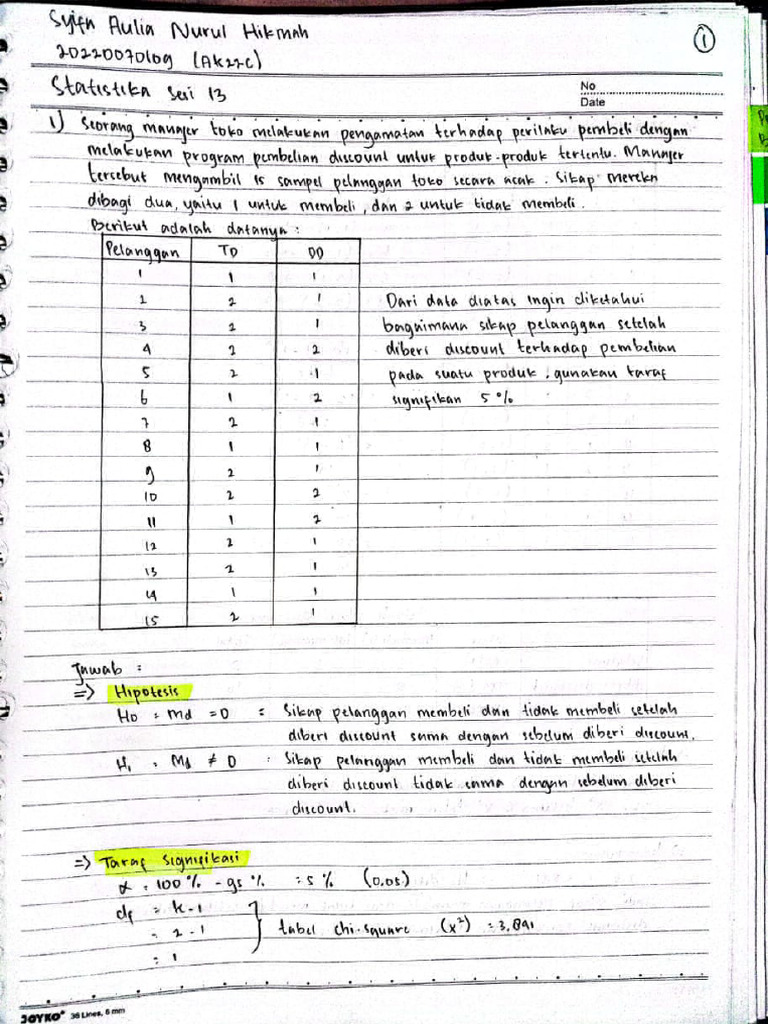 Syifa Aulia Nurul Hikmah
20220070109 (AK22C)
1
Statistika Sesi 13
No
Date
1) Seorang manajer toko melakukan pengamatan terhadap perilaku pembeli dengan
melakukan program pembelian discount untuk produk-produk tertentu. Manajer
tersebut mengambil 15 sampel pelanggan toko secara acak. Sikap mereka
dibagi dua, yaitu 1 untuk membeli, dan 2 untuk tidak membeli.
Berikut adalah datanya :
Pelanggan TD DD
1 1 1
2 2 1
3 2 1
4 2 2
5 2 1
6 1 2
7 2 1
8 1 1
9 2 1
10 2 2
11 1 2
12 2 1
13 2 1
14 1 1
15 2 1
Dari data diatas ingin diketahui
bagaimana sikap pelanggan setelah
diberi discount terhadap pembelian
pada suatu produk. gunakan taraf
signifikan 5%
Jawab :
=> Hipotesis
Ho = Md = 0 = Sikap pelanggan membeli dan tidak membeli setelah
diberi discount sama dengan sebelum diberi discount.
H1 = Md ≠ 0 : Sikap pelanggan membeli dan tidak membeli setelah
diberi discount tidak sama dengan sebelum diberi
discount.
=> Taraf Signifikasi
α = 100% - 95% = 5% (0,05)
df = k-1
= 2-1
= 1
tabel chi-square (x²) = 3,841
JOYKO 36 Lines, 6 mm